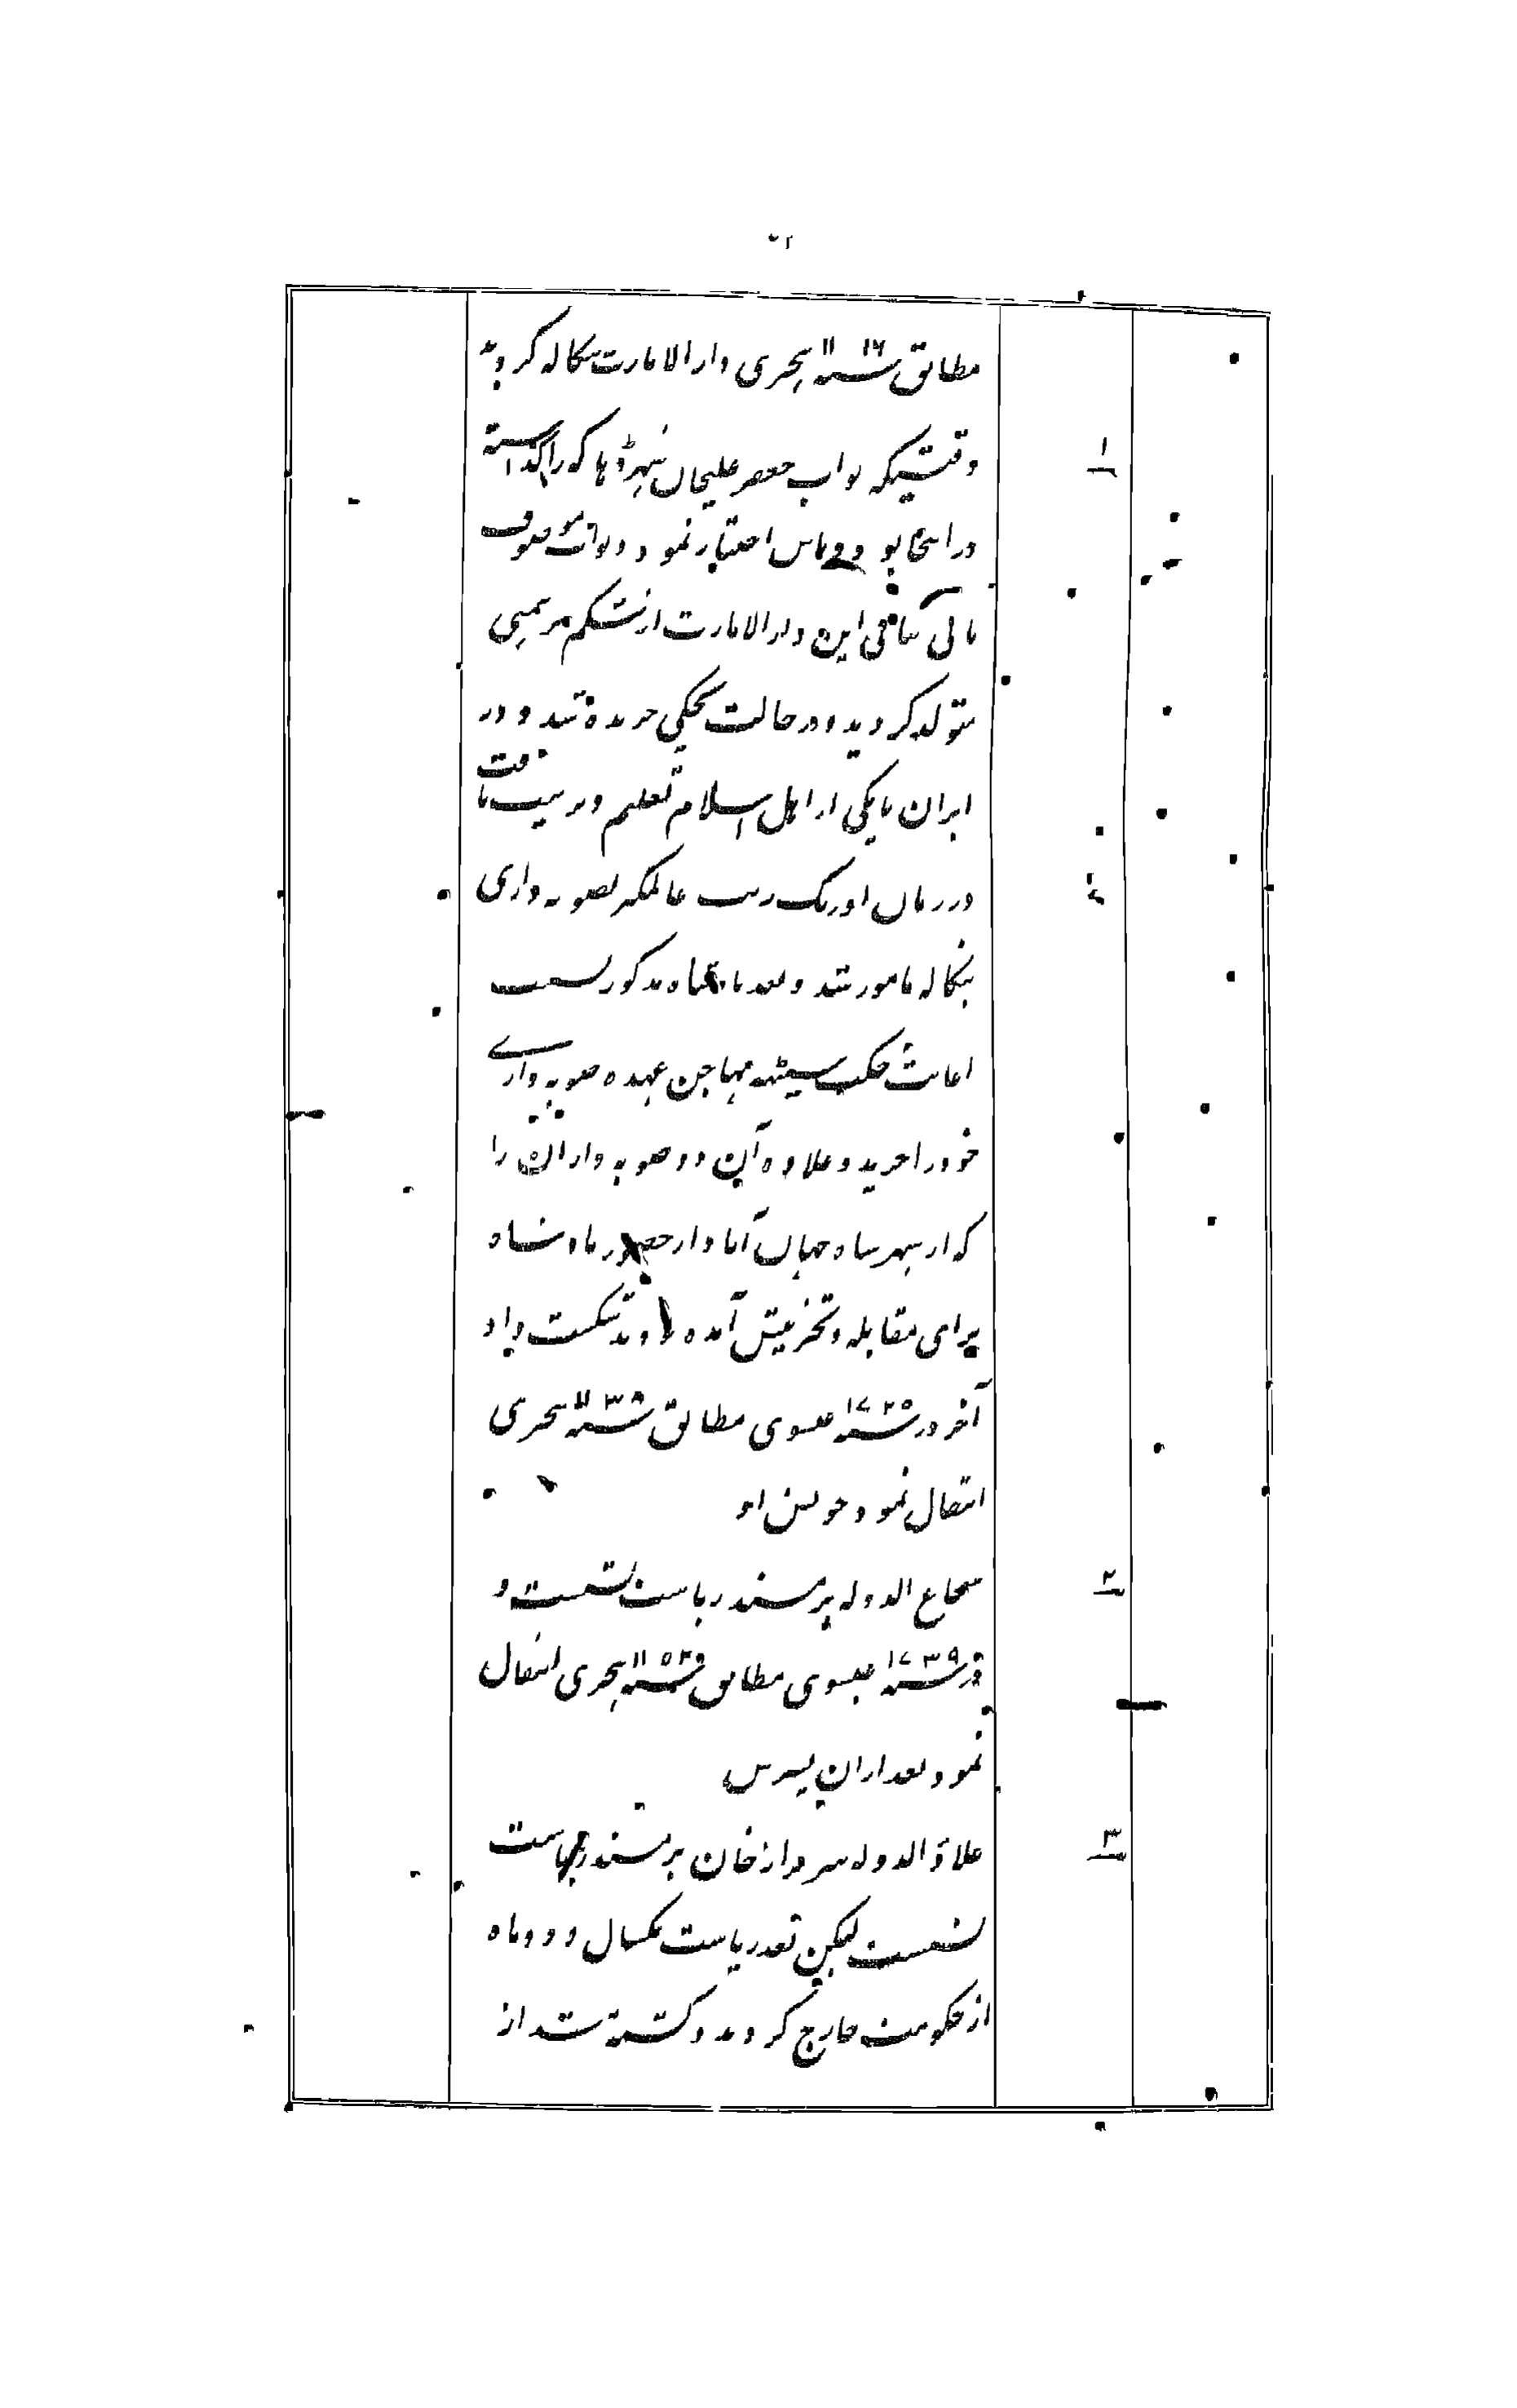 مطابق ۱۱۱۶ سنه هجری دار الامارت بنگاله گردید
۱
وقتیکه نواب جعفر علیخان شهر ڈهاکه را گذاشته
در اینجا بود و باش اختیار نمود و نواب موصوف
بانی مبانی این دار الامارت از شکم برهمنی
متولد گردید و در حالت بچگی خریده شد و در
ایران با یکی از اهل اسلام تعلیم و تربیت یافت
در زمان اورنگ زیب عالمگیر بصوبه داری
بنگاله مامور شد و بعد بادشاه مذکور بسبب
اعانت جگت سیٹهه مهاجن عهده صوبه داری
خود را خرید و علاوه آن دو صوبه داران را
که از شهر شاه جهان آباد از حضور بادشاه
برای مقابله و تخریبش آمده بودند شکست داد
آخر در ۱۷۲۵ سنه عیسوی مطابق ۱۱۳۸ سنه هجری
انتقال نمود و خویش او
۲
شجاع الدوله بر مسند ریاست نشست و
در ۱۷۳۹ سنه عیسوی مطابق ۱۱۵۲ سنه هجری انتقال
نمود بعد ازان پسرش
۳
علاؤ الدوله سرفراز خان بر مسند ریاست
نشست لیکن بعد ریاست یکسال و دو ماه
از حکومت خارج گردید و کشته شد از